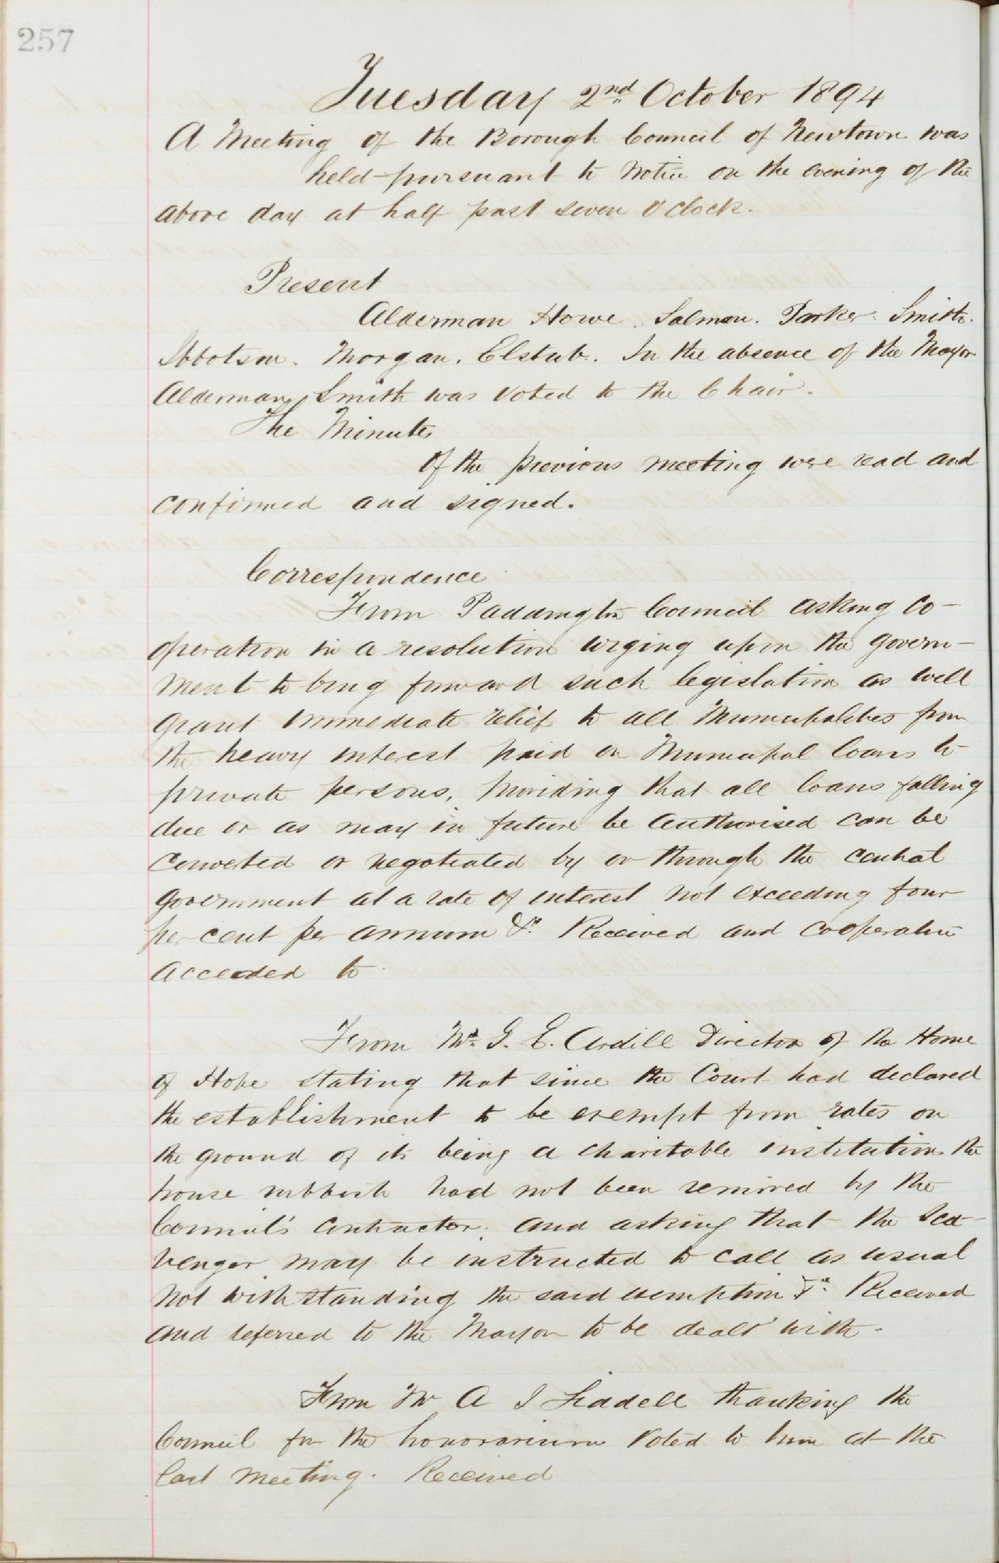 257
Tuesday 2nd October 1894
A Meeting of the Borough Council of Newtown was
held pursuant to notice on the evening of the
above day at half past seven O'Clock.
Present
Alderman Howe. Salmon. Parker. Smith.
Abbotson. Morgan. Elstub. In the absence of the Mayor
Alderman Smith was voted to the Chair.
The Minutes
Of the previous meeting were read and
confirmed and signed.
Correspondence
From Paddington Council asking co-
operation in a resolution urging upon the govern-
ment to bring forward such legislation as will
grant immediate relief to all Municipalities from
the heavy interest paid on Municipal loans to
private persons, providing that all loans falling
due or as may in future be authorised can be
converted or negotiated by or through the central
government at a rate of interest not exceeding four
per cent per annum &c. Received and cooperation
acceeded to.
From Mr. G. E. Ardill Director of the Home
of Hope stating that since the Court had declared
the establishment to be exempt from rates on
the ground of its being a charitable institution the
house rubbish had not been removed by the
Council's contractor, and asking that the Sca-
venger may be instructed to call as usual
not withstanding the said exemption &c. Received
and referred to the Mayor to be dealt with.
From Mr A J Liddell thanking the
Council for the honorarium voted to him at the
last meeting. Received